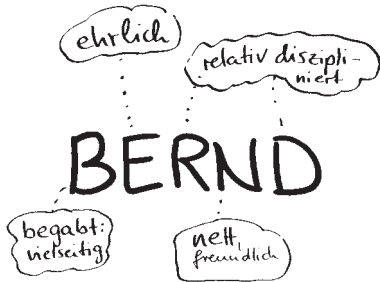 ehrlich
relativ diszipli-
niert
BERND
begabt:
vielseitig
nett,
freundlich